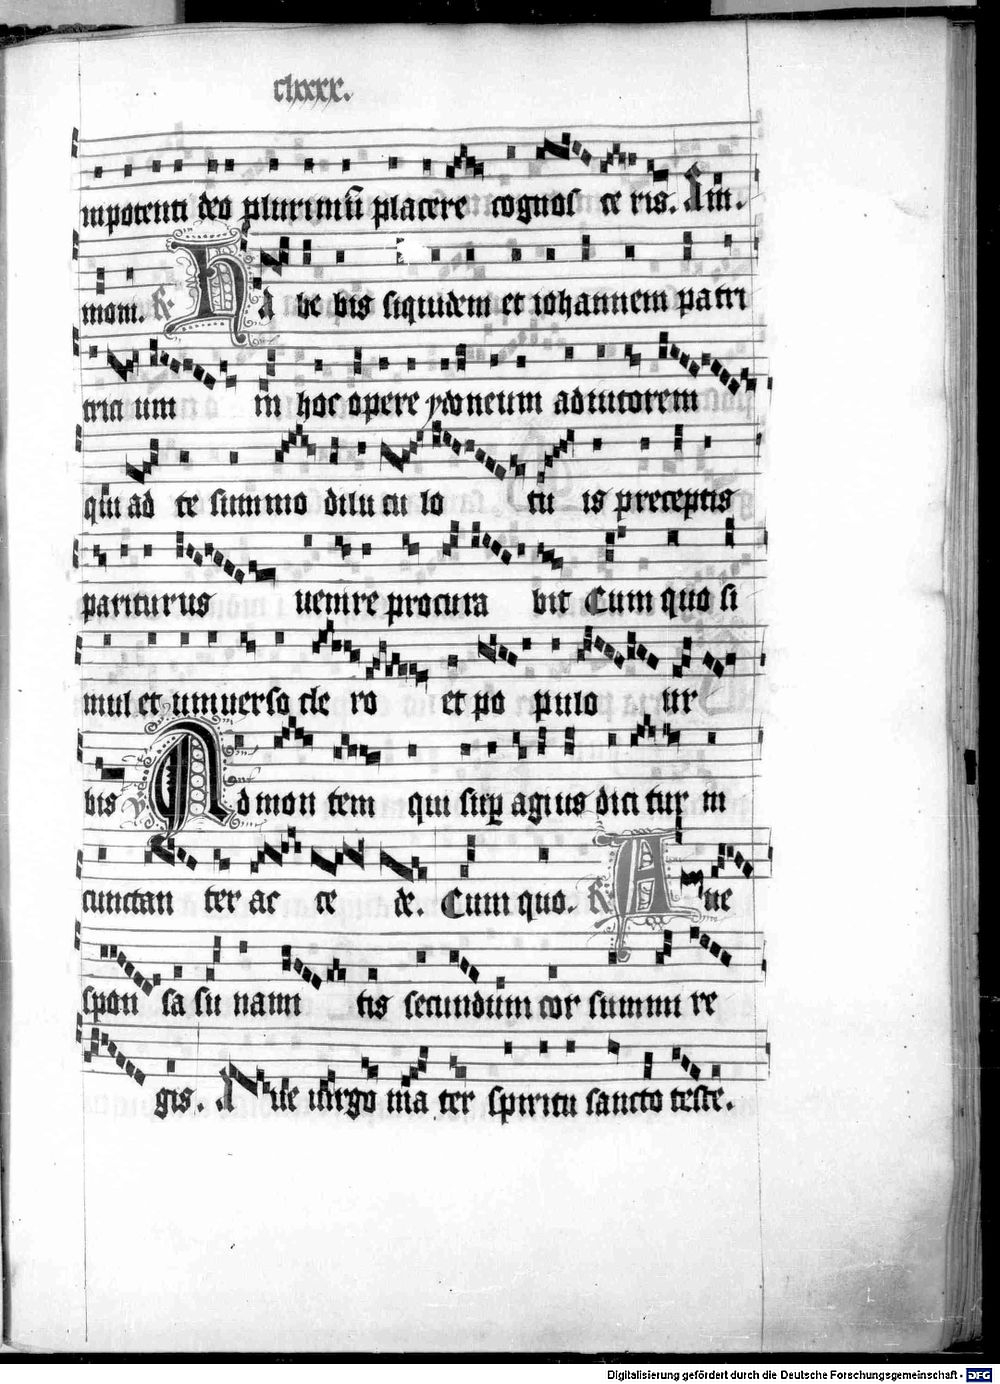 clxxx.
nipotenti deo plurimũ placere cognos ce ris. Am.
mom. R. Ha be bis siquidem et iohannem patri
tria um in hoc opere ydoneum adiutorem
qui ad te summo dilu cu lo tu is preceptis
pariturus uenire procura bit Cum quo si
mul et uniuerso cle ro et po pulo ur
bis V. Ad mon tem qui sup agius dici tur in
cunctan ter ac ce de. Cum quo. R. Aue
spon sa su nami tis secundum cor summi re
gis. Aue uirgo ma ter spiritu sancto teste.
Digitalisierung gefördert durch die Deutsche Forschungsgemeinschaft - DFG